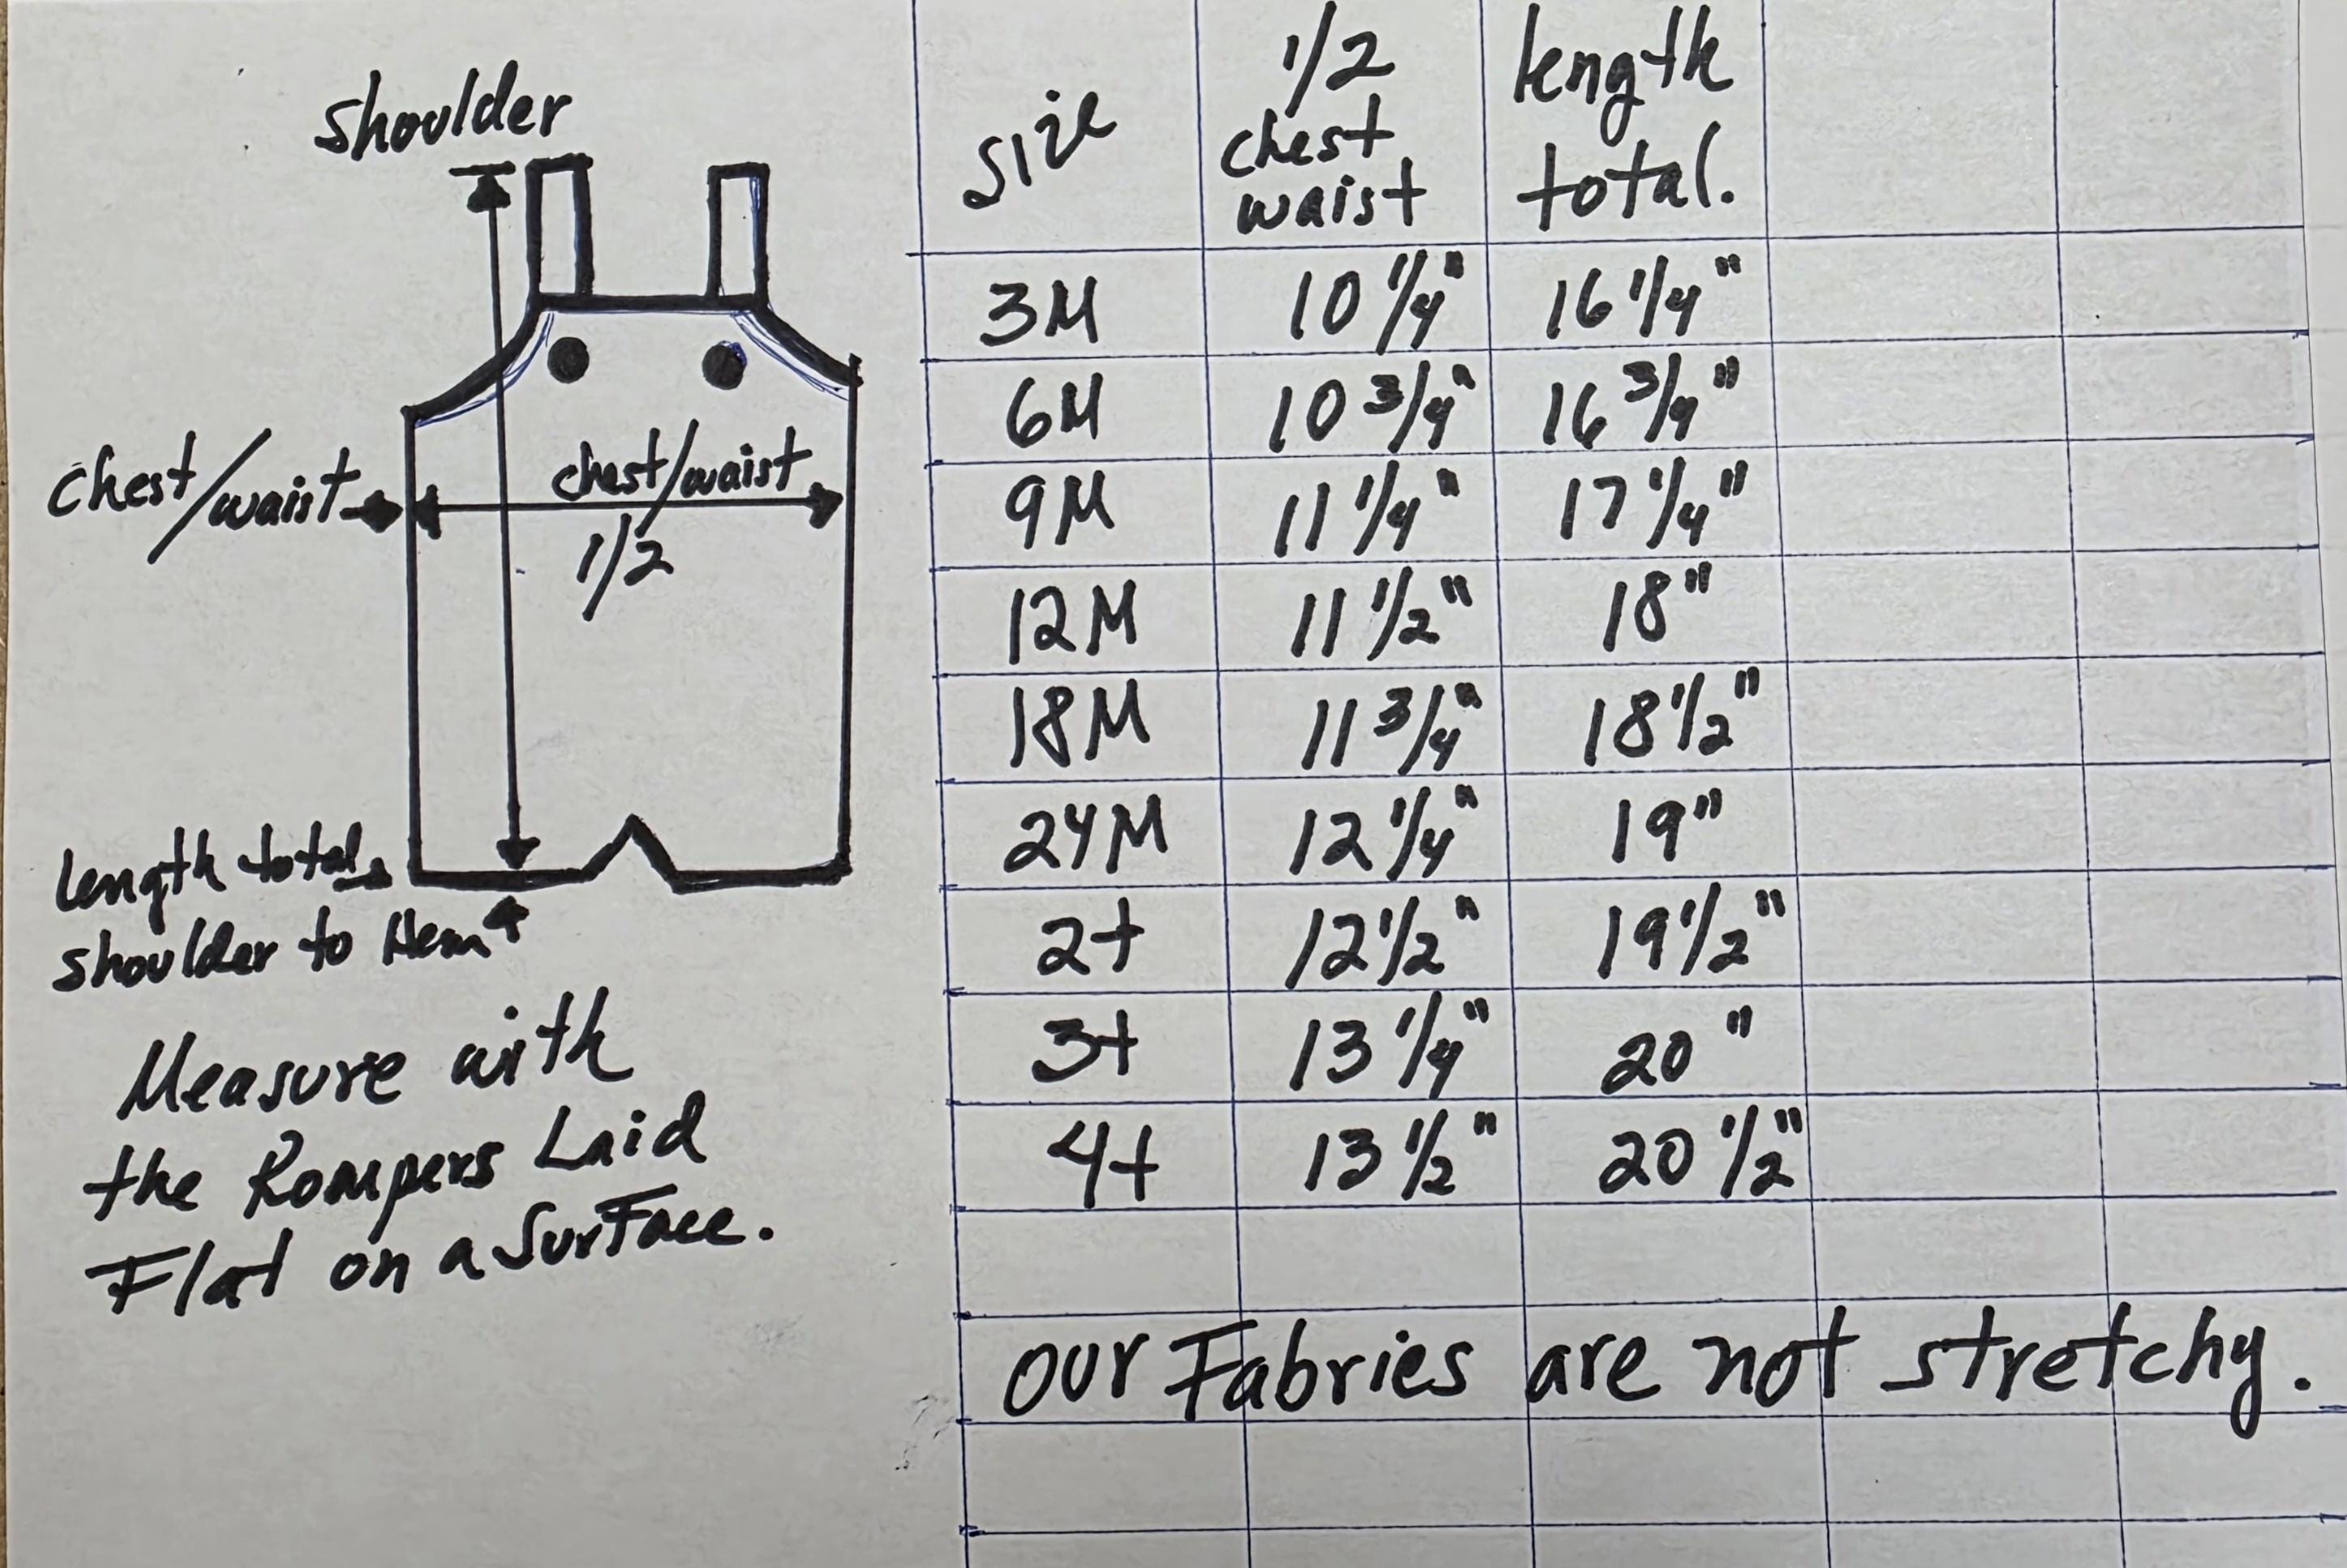 shoulder
chest/waist
chest/waist
1/2
length total
shoulder to Hem
Measure with
the Rompers Laid
Flat on a SurFace.
size 1/2 chest waist length total.
3M 10 1/4" 16 1/4"
6M 10 3/4" 16 3/4"
9M 11 1/4" 17 1/4"
12M 11 1/2" 18"
18M 11 3/4" 18 1/2"
24M 12 1/4" 19"
2t 12 1/2" 19 1/2"
3t 13 1/4" 20"
4t 13 1/2" 20 1/2"
our Fabries are not stretchy.